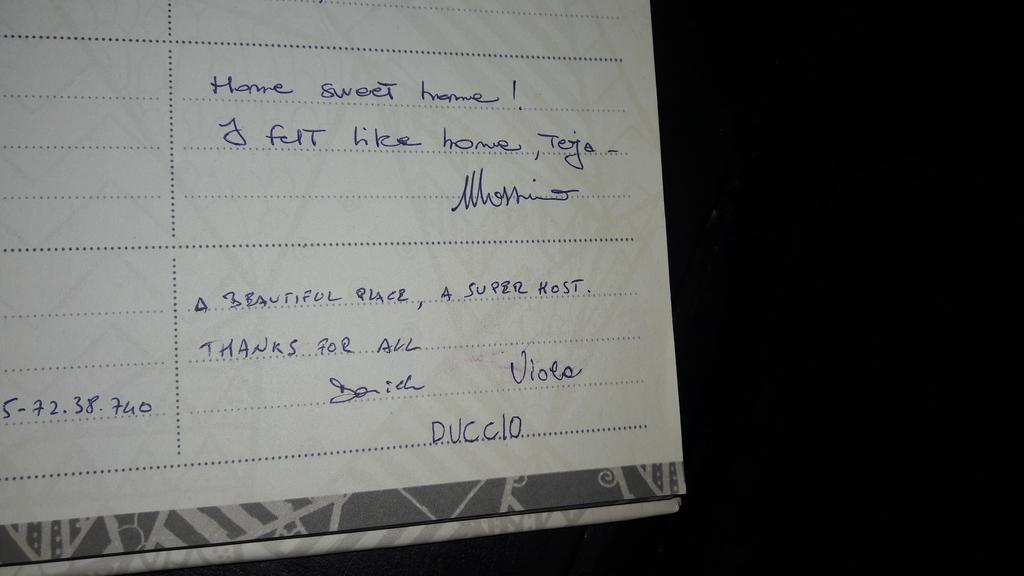 Home sweet home!
I felt like home, Teja-
Massimo
A BEAUTIFUL PLACE, A SUPER HOST.
THANKS FOR ALL
Viola
5-72.38.740
DUCCIO